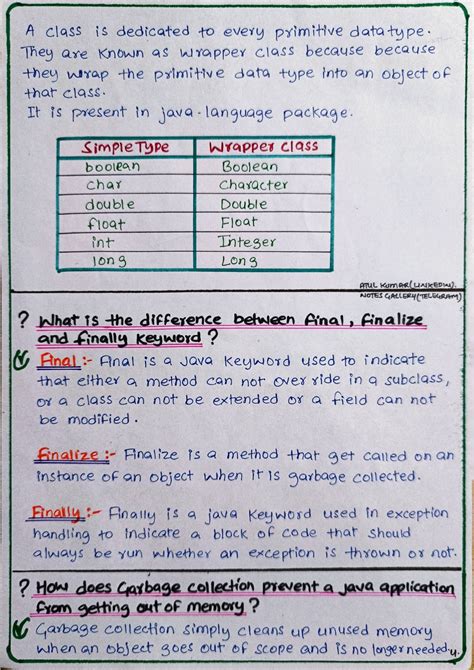 A class is dedicated to every primitive datatype.
They are known as wrapper class because because
they wrap the primitive data type into an object of
that class.
It is present in java.language package.
Simple Type Wrapper class
boolean Boolean
char Character
double Double
float Float
int Integer
long Long
ATUL KUMAR (LINKEDIN).
NOTES GALLERY (TELEGRAM)
? What is the difference between final, finalize
and finally keyword ?
Final :- Final is a Java Keyword used to indicate
that either a method can not over ride in a subclass,
or a class can not be extended or a field can not
be modified.
Finalize :- Finalize is a method that get called on an
instance of an object when it is garbage collected.
Finally :- Finally is a java keyword used in exception
handling to indicate a block of code that should
always be run whether an exception is thrown or not.
? How does Garbage collection prevent a java application
from getting out of memory ?
Garbage collection simply cleans up unused memory
when an object goes out of scope and is no longer needed
4.